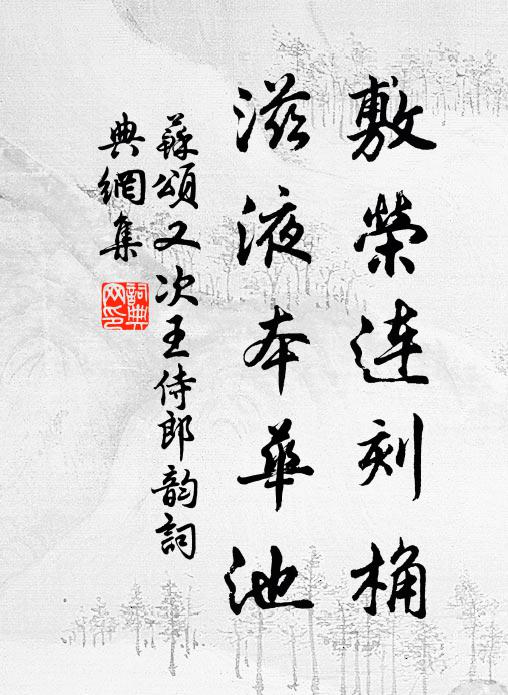 敷榮連刻桷
滋液本華池
蘇頌又次王侍郎韵詞
典網集
詞典网印